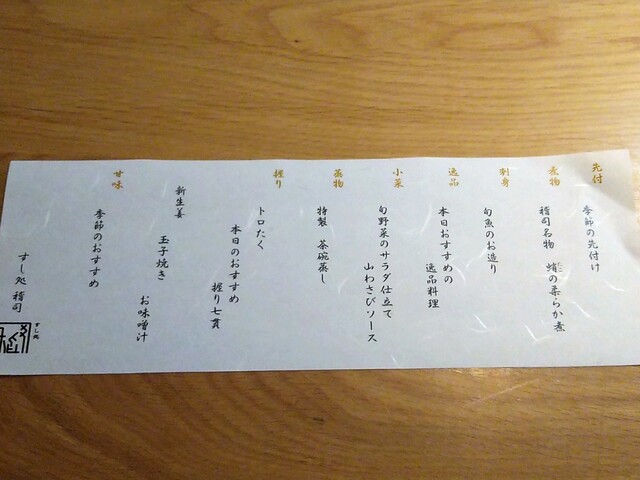 先付
季節の先付け
煮物
稽司名物 蛸の柔らか煮
刺身
旬魚のお造り
逸品
本日おすすめの
逸品料理
小菜
旬野菜のサラダ仕立て
山わさびソース
蒸物
特製 茶碗蒸し
握り
トロたく
本日のおすすめ
握り七貫
新生姜
玉子焼き
お味噌汁
甘味
季節のおすすめ
すし処 稽司
すし処